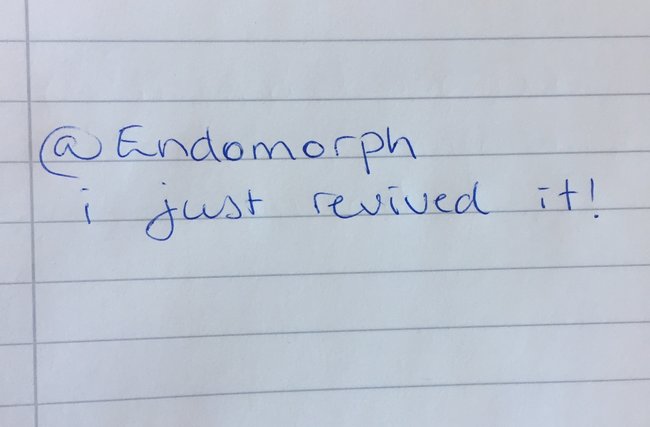 @Endomorph
i just revived it!